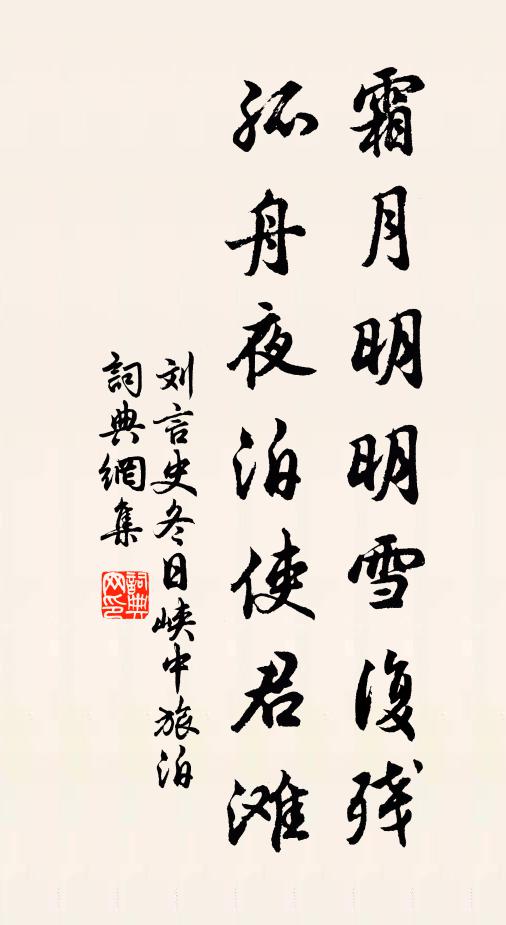 霜月明明雪復残
孤舟夜泊使君滩
刘言史冬日峡中旅泊
詞典網集
詞典网印